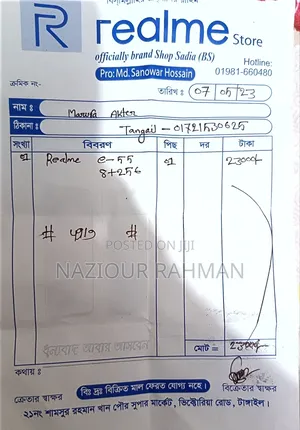 realme Store
officially brand Shop Sadia (BS)
Pro: Md. Sanowar Hossain
Hotline:
01981-660480
ক্রমিক নং-
তারিখ : 07 05 23
নাম :
Akter
ঠিকানা : Tangail - 01721530625
সংখ্যা বিবরণ পিছ দর টাকা
01 Realme C-55 01 23000/-
8+256
# 4919 #
POSTED ON JIJI
NAZIOUR RAHMAN
মোট = 23000/-
কথায় :
ক্রেতার স্বাক্ষর
বিঃ দ্রঃ বিক্রিত মাল ফেরত যোগ্য নহে।
বিক্রেতার স্বাক্ষর
২১নং শামসুর রহমান খান পৌর সুপার মার্কেট, ভিক্টোরিয়া রোড, টাঙ্গাইল।